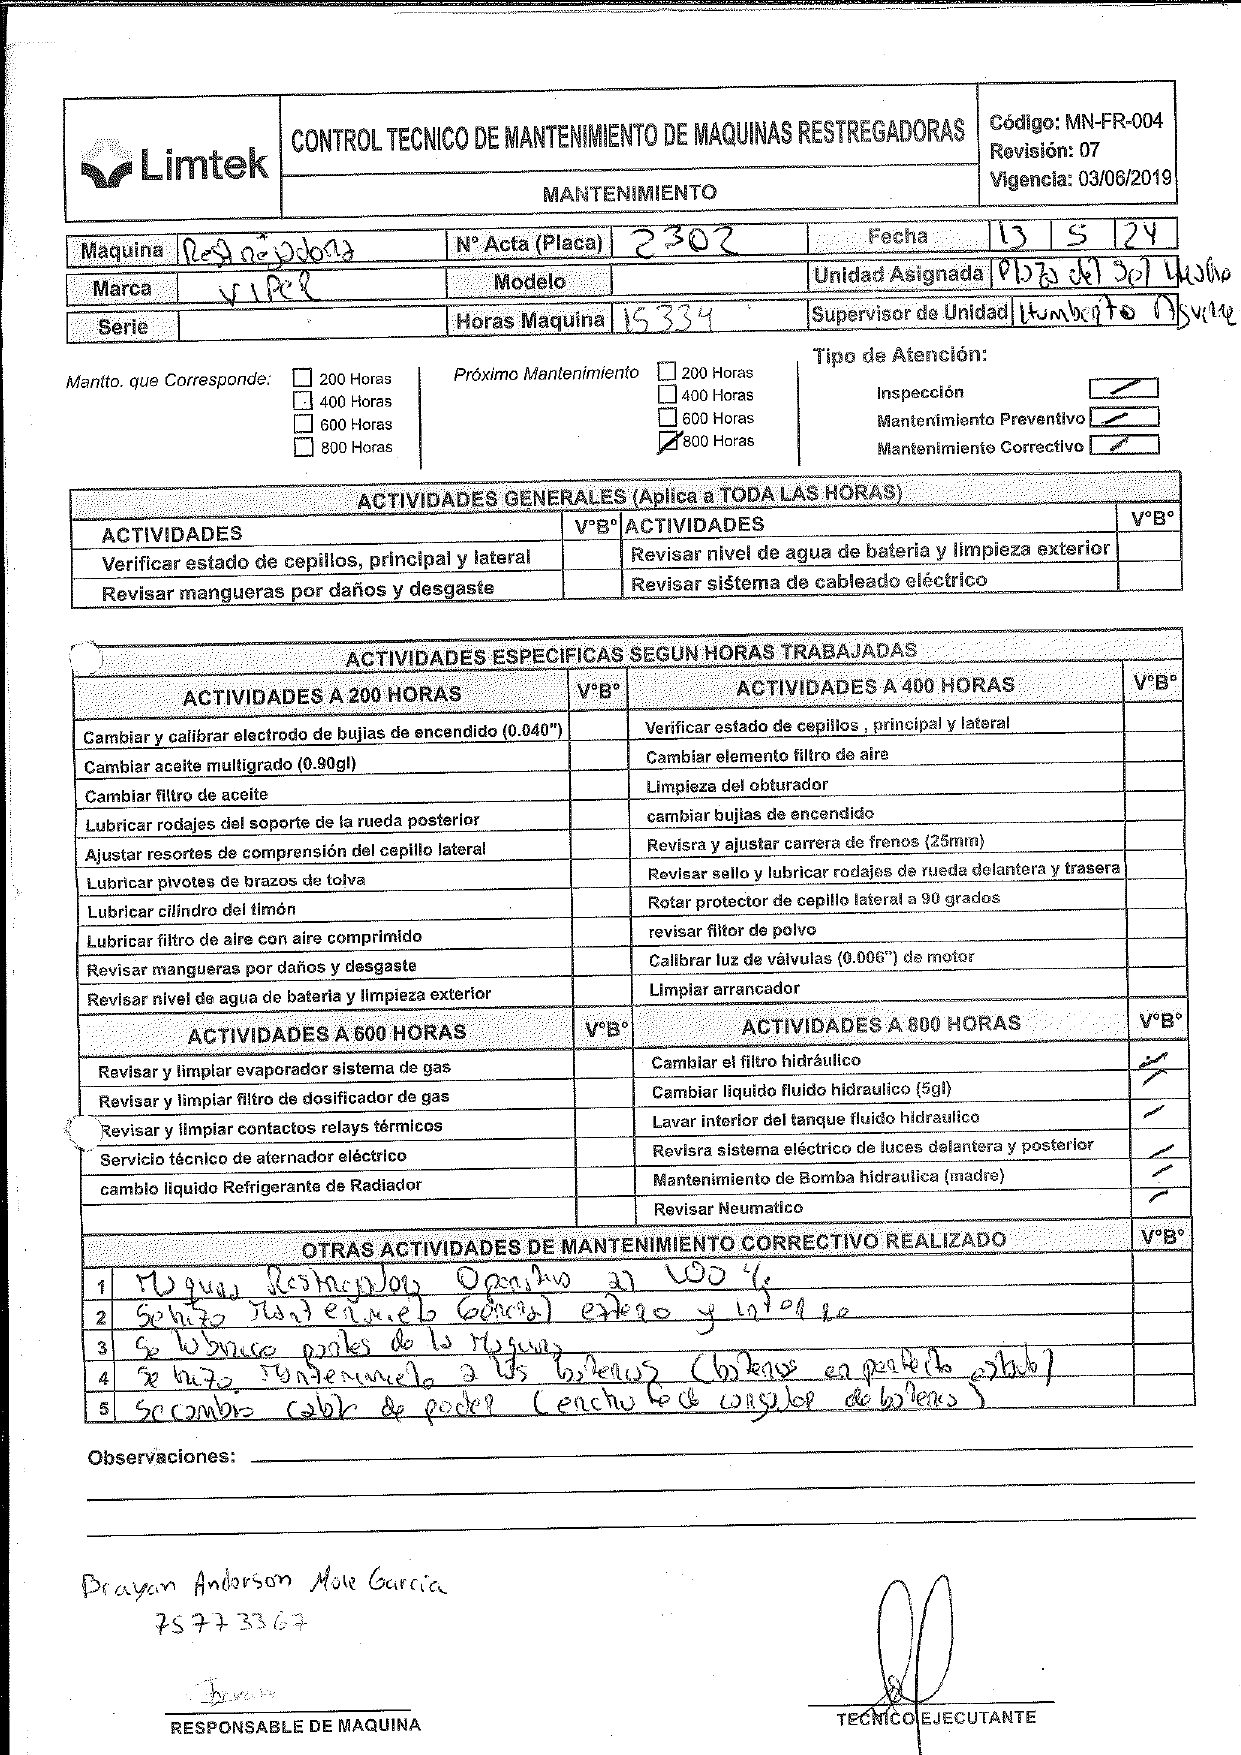 Limtek
CONTROL TECNICO DE MANTENIMIENTO DE MAQUINAS RESTREGADORAS
MANTENIMIENTO
Código: MN-FR-004
Revisión: 07
Vigencia: 03/06/2019
Maquina Restregadora N° Acta (Placa) 2302 Fecha 13 5 24
Marca VIPER Modelo Unidad Asignada Plaza del Sol
Serie Horas Maquina 15334 Supervisor de Unidad Humberto
Mantto. que Corresponde: 200 Horas
400 Horas
600 Horas
800 Horas
Próximo Mantenimiento 200 Horas
400 Horas
600 Horas
800 Horas
Tipo de Atención:
Inspección
Mantenimiento Preventivo
Mantenimiento Correctivo
ACTIVIDADES GENERALES (Aplica a TODA LAS HORAS)
ACTIVIDADES V°B° ACTIVIDADES V°B°
Verificar estado de cepillos, principal y lateral Revisar nivel de agua de bateria y limpieza exterior
Revisar mangueras por daños y desgaste Revisar sistema de cableado eléctrico
ACTIVIDADES ESPECIFICAS SEGUN HORAS TRABAJADAS
ACTIVIDADES A 200 HORAS V°B° ACTIVIDADES A 400 HORAS V°B°
Cambiar y calibrar electrodo de bujias de encendido (0.040") Verificar estado de cepillos , principal y lateral
Cambiar aceite multigrado (0.90gl) Cambiar elemento filtro de aire
Cambiar filtro de aceite Limpieza del obturador
Lubricar rodajes del soporte de la rueda posterior cambiar bujias de encendido
Ajustar resortes de comprensión del cepillo lateral Revisra y ajustar carrera de frenos (25mm)
Lubricar pivotes de brazos de tolva Revisar sello y lubricar rodajes de rueda delantera y trasera
Lubricar cilindro del timón Rotar protector de cepillo lateral a 90 grados
Lubricar filtro de aire con aire comprimido revisar filtor de polvo
Revisar mangueras por daños y desgaste Calibrar luz de válvulas (0.006") de motor
Revisar nivel de agua de bateria y limpieza exterior Limpiar arrancador
ACTIVIDADES A 600 HORAS V°B° ACTIVIDADES A 800 HORAS V°B°
Revisar y limpiar evaporador sistema de gas Cambiar el filtro hidráulico
Revisar y limpiar filtro de dosificador de gas Cambiar liquido fluido hidraulico (5gl)
Revisar y limpiar contactos relays térmicos Lavar interior del tanque fluido hidraulico
Servicio técnico de aternador eléctrico Revisra sistema eléctrico de luces delantera y posterior
cambio liquido Refrigerante de Radiador Mantenimiento de Bomba hidraulica (madre)
Revisar Neumatico
OTRAS ACTIVIDADES DE MANTENIMIENTO CORRECTIVO REALIZADO V°B°
1 Maquina Restregadora Operativo al 100 %
2 Se hizo Mantenimiento General externo y interno
3 Se lubrico partes de la Maquina
4 Se hizo Mantenimiento a las baterias (baterias en perfecto estado)
5 Se cambio cable de poder (enchufe de cargador de baterias)
Observaciones:
Brayan Anderson Mole Garcia
75773367
RESPONSABLE DE MAQUINA
TECNICO EJECUTANTE